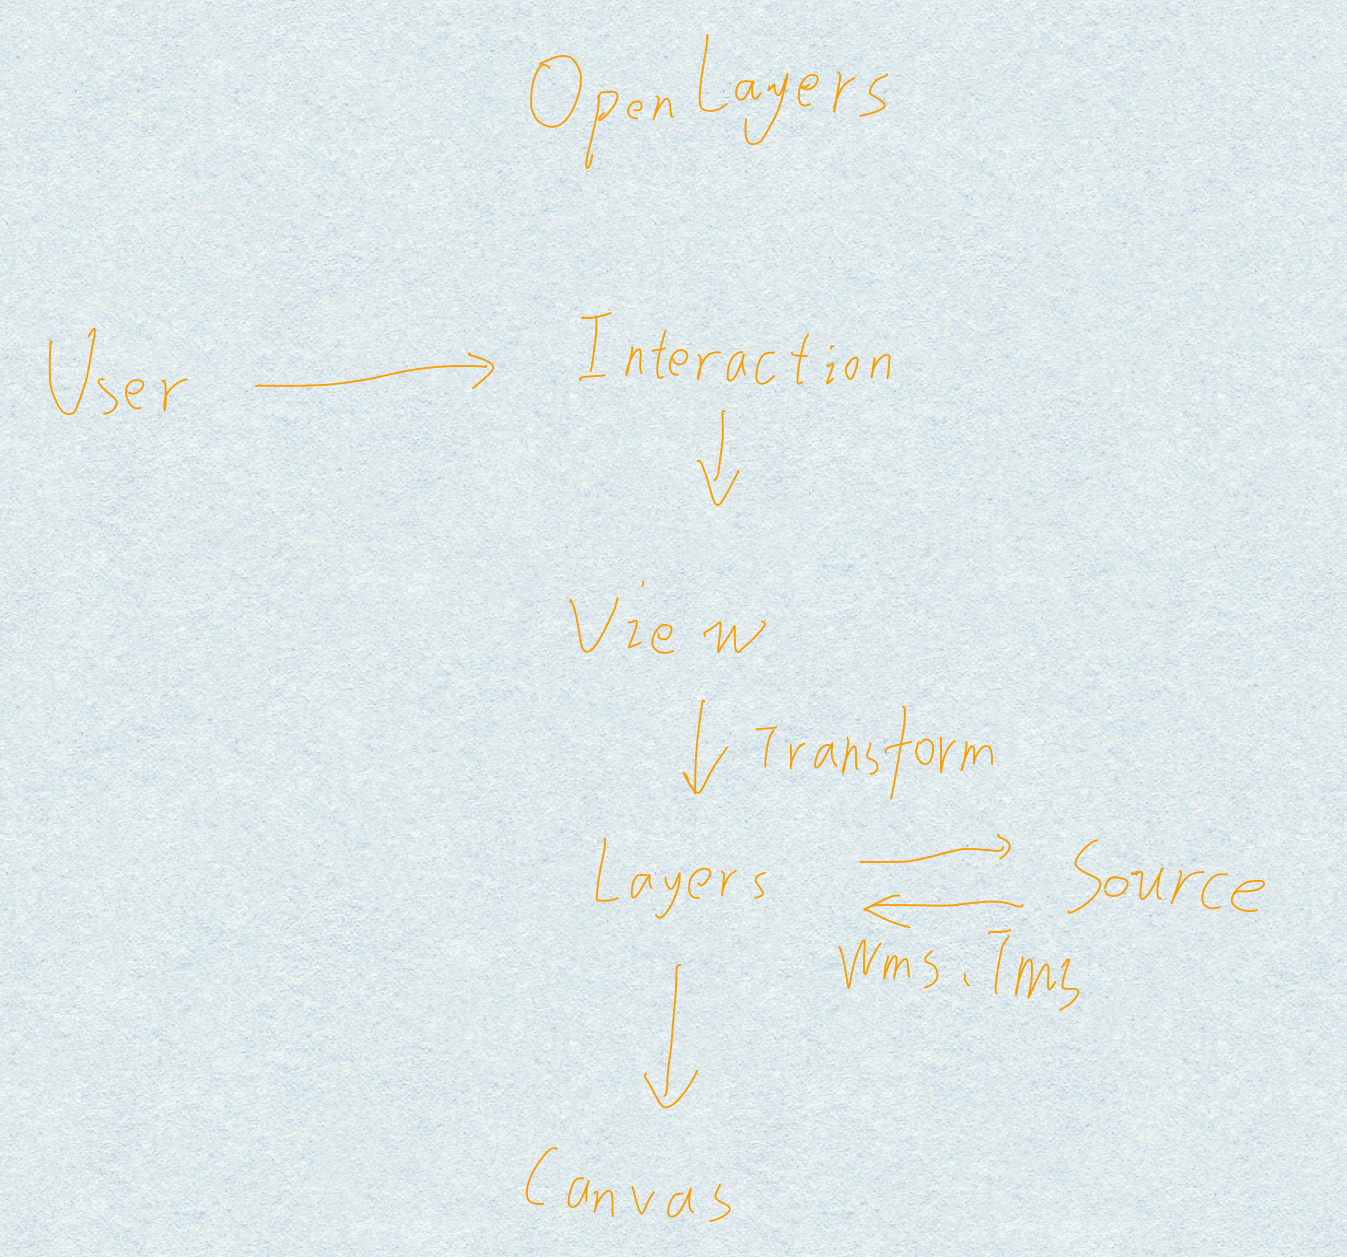 OpenLayers
User
Interaction
View
Transform
Layers
Source
Wms、Tms
Canvas